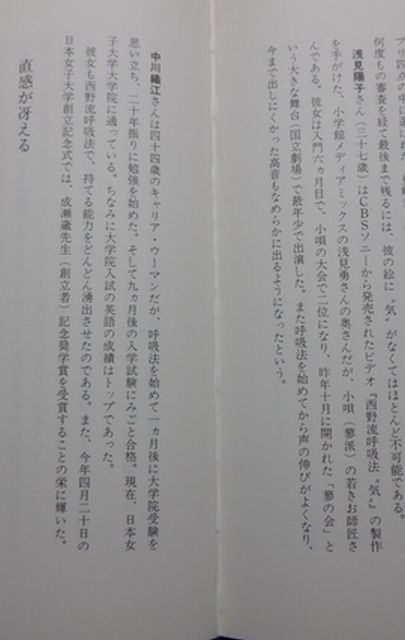 何度もの審査を経て最後まで残るには、彼の絵に〝気〟がなくてはほとんど不可能である。
浅見陽子さん（三十七歳）はCBSソニーから発売されたビデオ『西野流呼吸法〝気〟』の製作
を手がけた、小学館メディアミックスの浅見勇さんの奥さんだが、小唄（蓼派）の若きお師匠さ
んである。彼女は入門六ヵ月目で、小唄の大会で二位になり、昨年十月に開かれた「蓼の会」と
いう大きな舞台（国立劇場）で最年少で出演した。また呼吸法を始めてから声の伸びがよくなり、
今まで出しにくかった高音もなめらかに出るようになったという。
中川織江さんは四十四歳のキャリア・ウーマンだが、呼吸法を始めて一ヵ月後に大学院受験を
思い立ち、二十年振りに勉強を始めた。そして九ヵ月後の入学試験にみごと合格。現在、日本女
子大学大学院に通っている。ちなみに大学院入試の英語の成績はトップであった。
彼女も西野流呼吸法で、持てる能力をどんどん湧出させたのである。また、今年四月二十日の
日本女子大学創立記念式では、成瀬蔵先生（創立者）記念奨学賞を受賞することの栄に輝いた。
直感が冴える